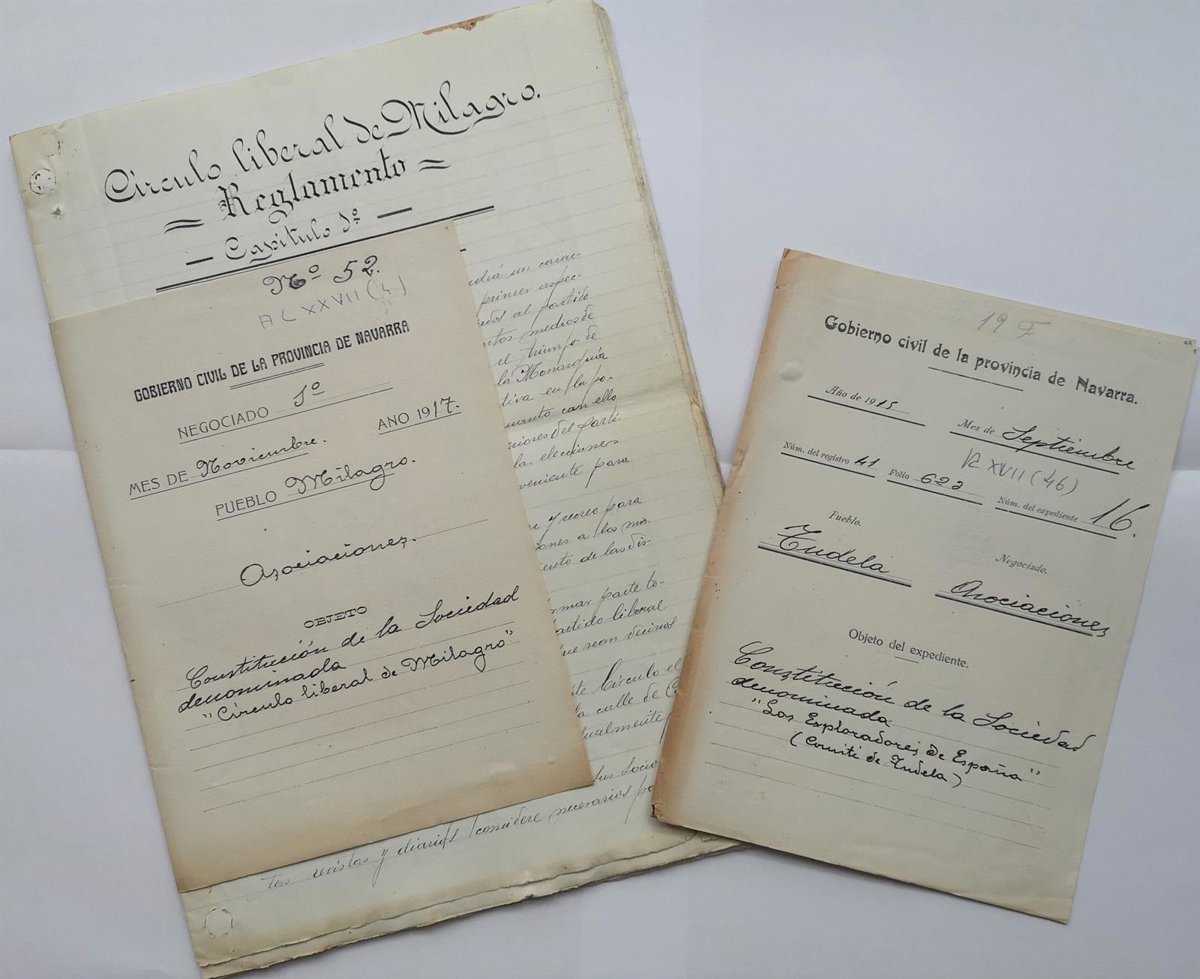 Círculo liberal de Milagro.
= Reglamento =
- Capítulo 1º -
Nº 52.
A C XXVII (4)
GOBIERNO CIVIL DE LA PROVINCIA DE NAVARRA
NEGOCIADO 1º
MES DE Noviembre. AÑO 1917.
PUEBLO Milagro.
Asociaciones.
OBJETO
Constitución de la Sociedad
denominada
"Círculo liberal de Milagro"
un carac-
primer aspec-
al partido
medios de
el triunfo de
la Monarquía
en la po-
con ello
del parti-
las elecciones
veniente para
y creo para
a los mis-
de las dis-
formar parte to-
partido liberal
que sean vecinos
Círculo el
la calle de
tualmente
sus socios
tas revistas y diarios considere necesarios
19 F
Gobierno civil de la provincia de Navarra.
Año de 1915 Mes de Septiembre
XVII (46)
Núm. del registro 41 Folio 622 Núm. del expediente 16.
Pueblo. Negociado.
Tudela Asociaciones
Objeto del expediente.
Constitución de la Sociedad
denominada
"Los Exploradores de España"
(Comité de Tudela)